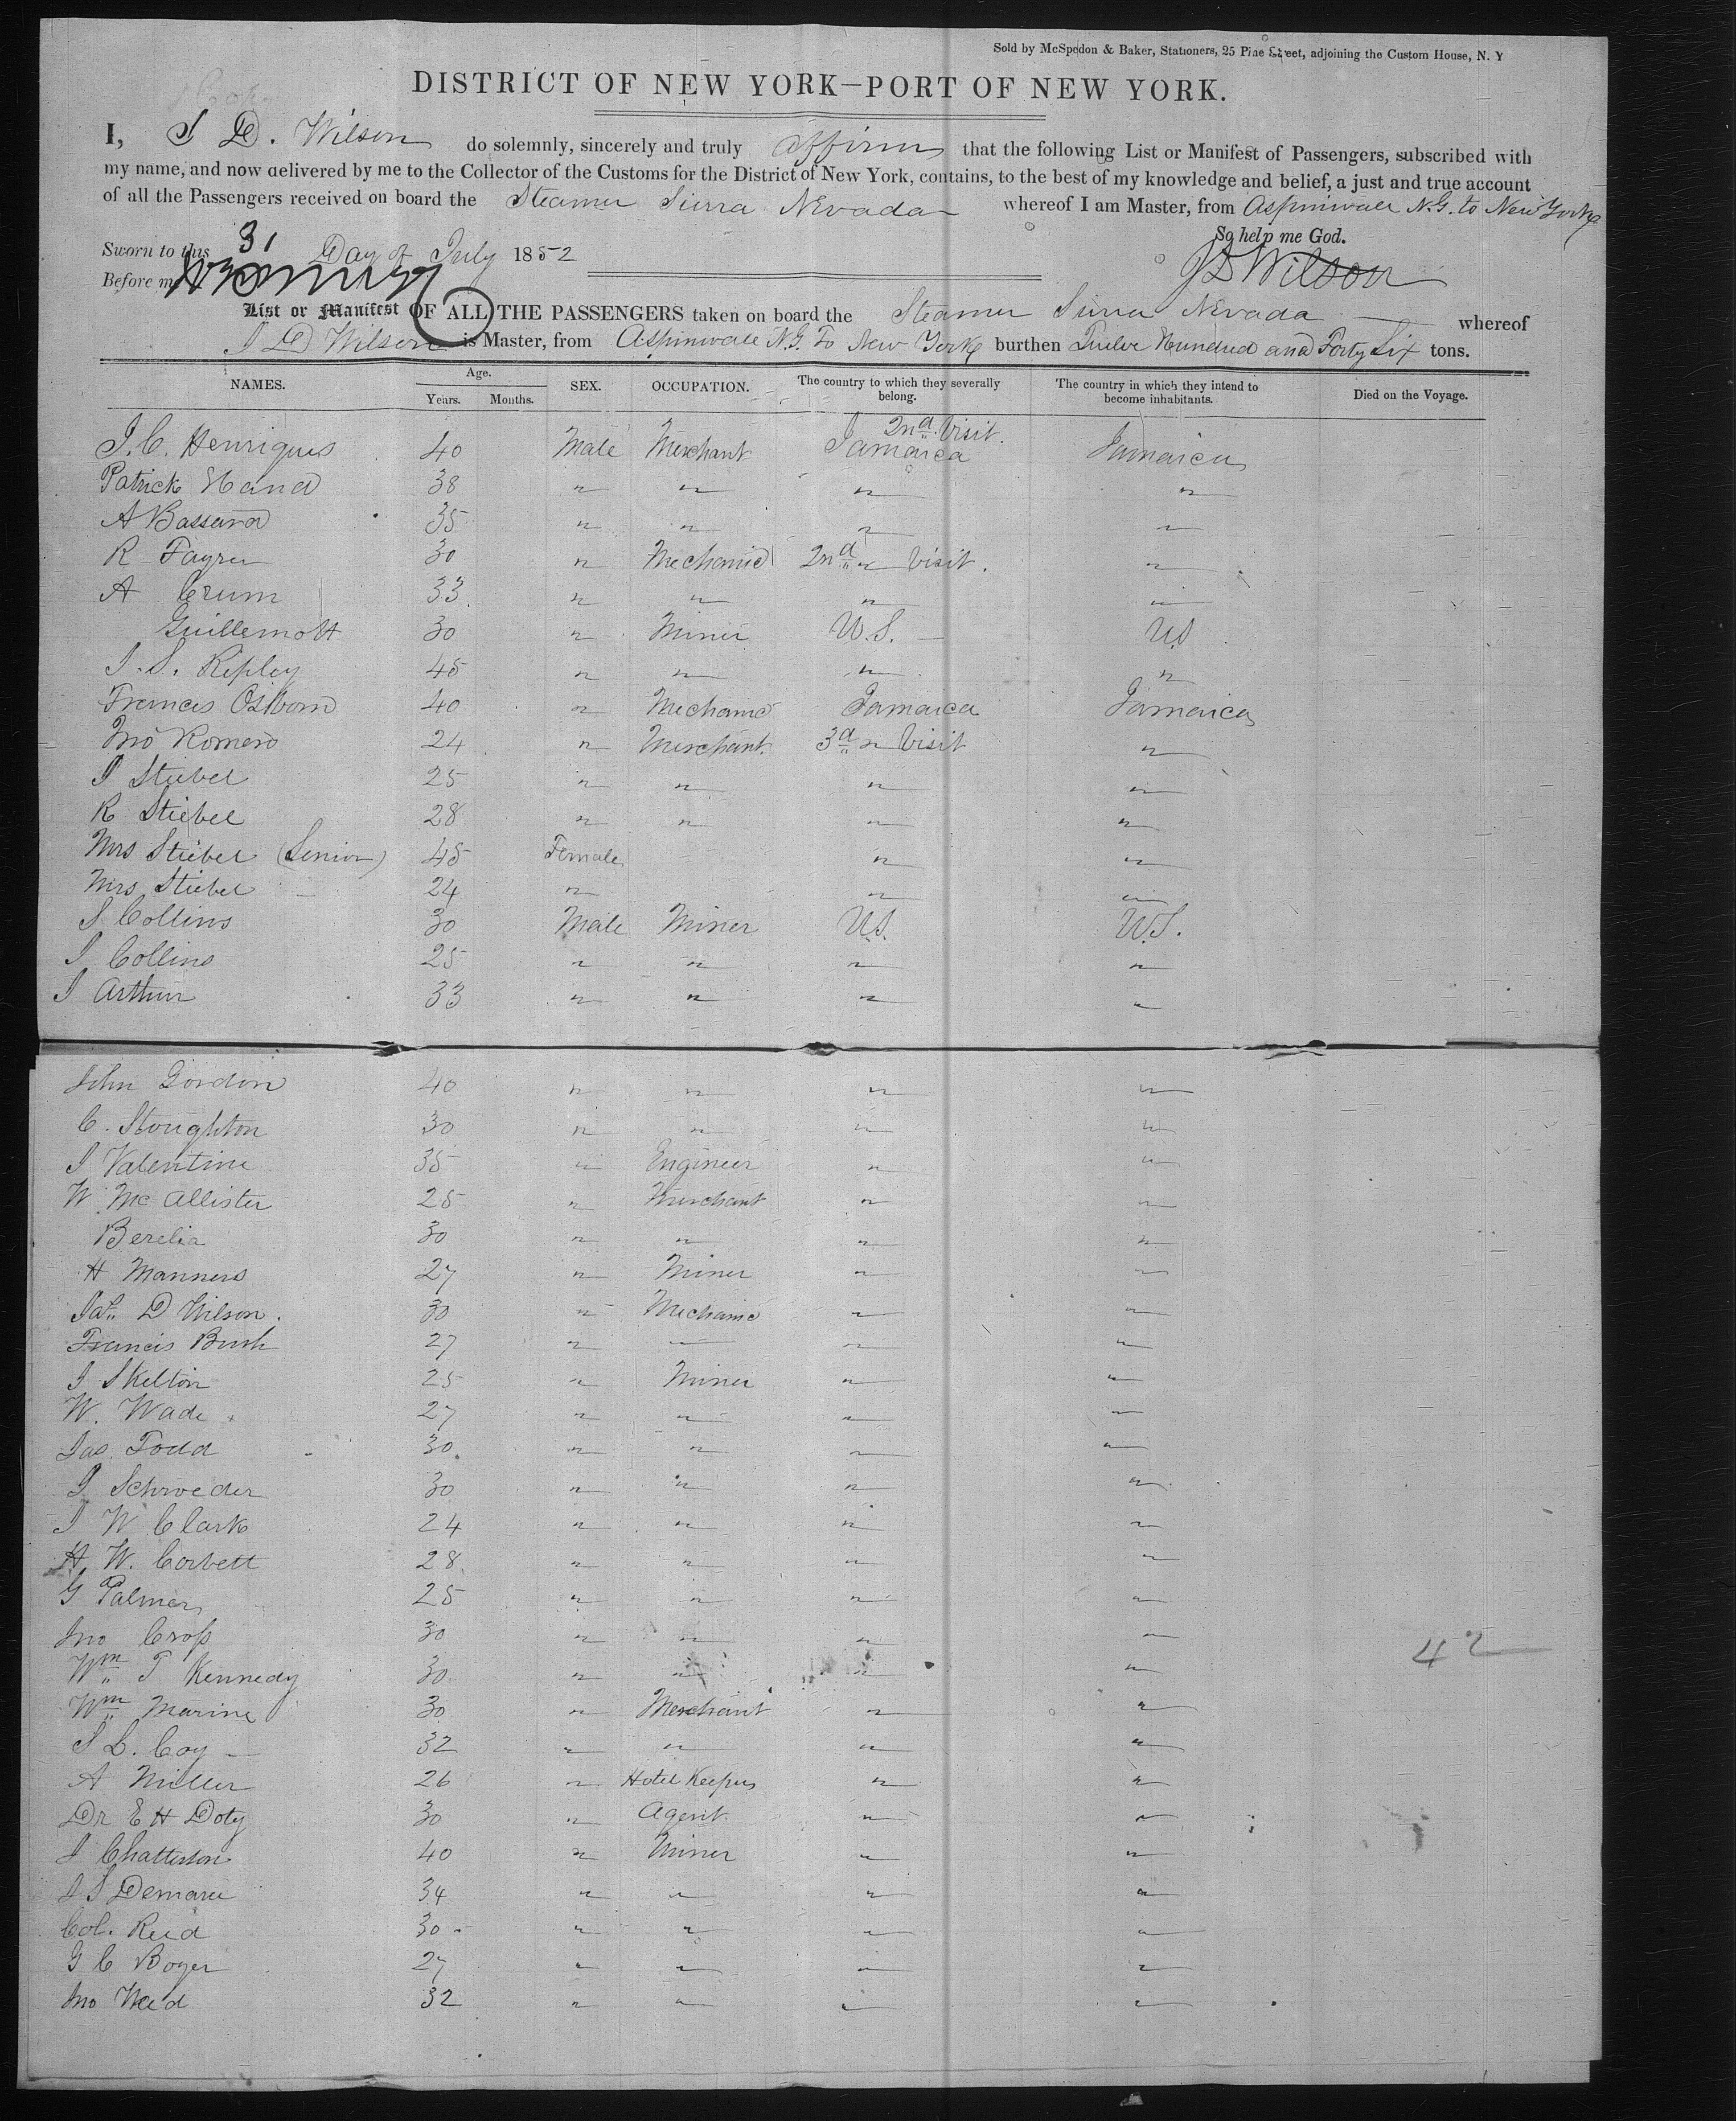 Sold by McSpedon & Baker, Stationers, 25 Pine Street, adjoining the Custom House, N. Y
DISTRICT OF NEW YORK—PORT OF NEW YORK.
I, J D. Wilson do solemnly, sincerely and truly affirm that the following List or Manifest of Passengers, subscribed with
my name, and now delivered by me to the Collector of the Customs for the District of New York, contains, to the best of my knowledge and belief, a just and true account
of all the Passengers received on board the Steamer Sierra Nevada whereof I am Master, from Aspinwall N.G. to New York
So help me God.
Sworn to this 31 Day of July 1852
J D Wilson
Before me
List or Manifest OF ALL THE PASSENGERS taken on board the Steamer Sierra Nevada whereof
J D Wilson is Master, from Aspinwall N.G. To New York burthen Twelve Hundred and Forty Six tons.
NAMES. Age. Years. Months. SEX. OCCUPATION. The country to which they severally belong. The country in which they intend to become inhabitants. Died on the Voyage.
2nd Visit.
J. C. Henriques 40 Male Merchant Jamaica Jamaica
Patrick Hand 38 " " " "
A Bassard 35 " " " "
R Fayrer 30 " Mechanic 2nd " Visit. "
A Crum 33 " " " "
Guillemott 30 " Miner U.S. US
J. S. Ripley 45 " " " "
Frances Osborn 40 " Mechanic Jamaica Jamaica
Jno Romero 24 " Merchant 3d " Visit "
J Stiebel 25 " " " "
R Stiebel 28 " " " "
Mrs Stiebel (Senior) 45 Female " "
Mrs Stiebel 24 " " "
S Collins 30 Male Miner U.S. U.S.
J Collins 25 " " " "
J Arthur 33 " " " "
John Gordon 40 " " " "
C. Stoughton 30 " " " "
J Valentine 35 " Engineer " "
W. McAllister 25 " Merchant " "
Berelia 30 " " " "
H Manners 27 " Miner " "
Jas. D Wilson. 30 " Mechanic " "
Francis Bush 27 " " " "
J Skelton 25 " Miner " "
W. Wade 27 " " " "
Jas Todd 30 " " " "
J Schroeder 30 " " " "
J W Clark 24 " " " "
H. W. Corbett 28. " " " "
G Palmer 25 " " " "
Jno Cross 30 " " " "
42
Wm P Kennedy 30 " " " "
Wm Marine 30 " Merchant " "
S L. Coy 32 " " " "
A Miller 26 " Hotel Keeper " "
Dr E H Doty 30 " Agent " "
J Chatterton 40 " Miner " "
J S Demaree 34 " " " "
Col. Reed 30 " " " "
G C Boyer 27 " " " "
Jno Weed 32 " " " "